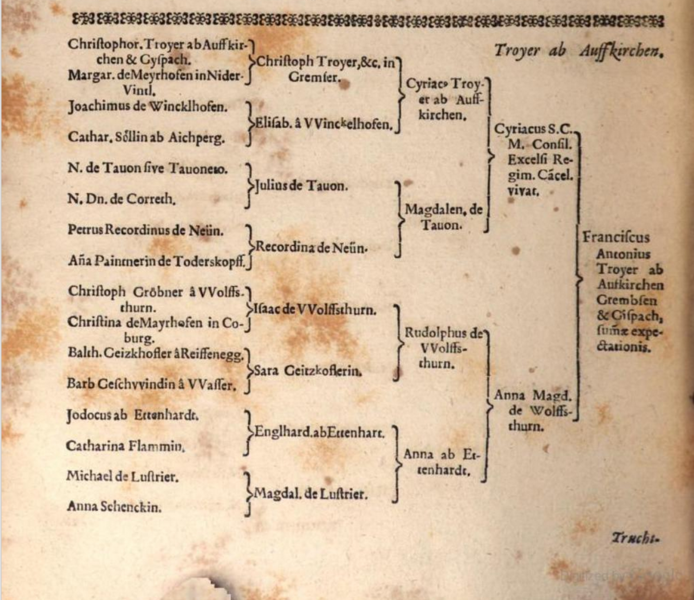 Troyer ab Auffkirchen.
Chriſtophor. Troyer ab Auffkir-
chen & Gyſpach.
Margar. de Meyrhofen in Nider-
Vintl.
Joachimus de Wincklhofen.
Cathar. Söllin ab Aichperg.
N. de Tauon ſive Tauoneto.
N. Dn. de Correth.
Petrus Recordinus de Neün.
Aña Paintnerin de Toderskopff.
Chriſtoph Gröbner â VVolffs-
thurn.
Chriſtina de Mayrhofen in Co-
burg.
Balth. Geizkhofler â Reiffenegg.
Barb Geſchvvindin â VVaſſer.
Jodocus ab Ettenhardt.
Catharina Flammin.
Michael de Luſtrier.
Anna Schenckin.
Chriſtoph Troyer, &c. in
Gremſer.
Eliſab. â VVinckelhofen.
Julius de Tauon.
Recordina de Neün.
Iſaac de VVolffsthurn.
Sara Geitzkoflerin.
Englhard. ab Ettenhart.
Magdal. de Luſtrier.
Cyriac⁹ Troy-
er ab Auff-
kirchen.
Magdalen. de
Tauon.
Rudolphus de
VVolffs-
thurn.
Anna ab Et-
tenhardt.
Cyriacus S.C.
M. Conſil.
Excelſi Re-
gim. Cãcel.
vivat.
Anna Magd.
de Wolffs-
thurn.
Franciſcus
Antonius
Troyer ab
Aufkirchen
Grembſen
& Giſpach,
ſum̃æ expe-
ctationis.
Trucht-